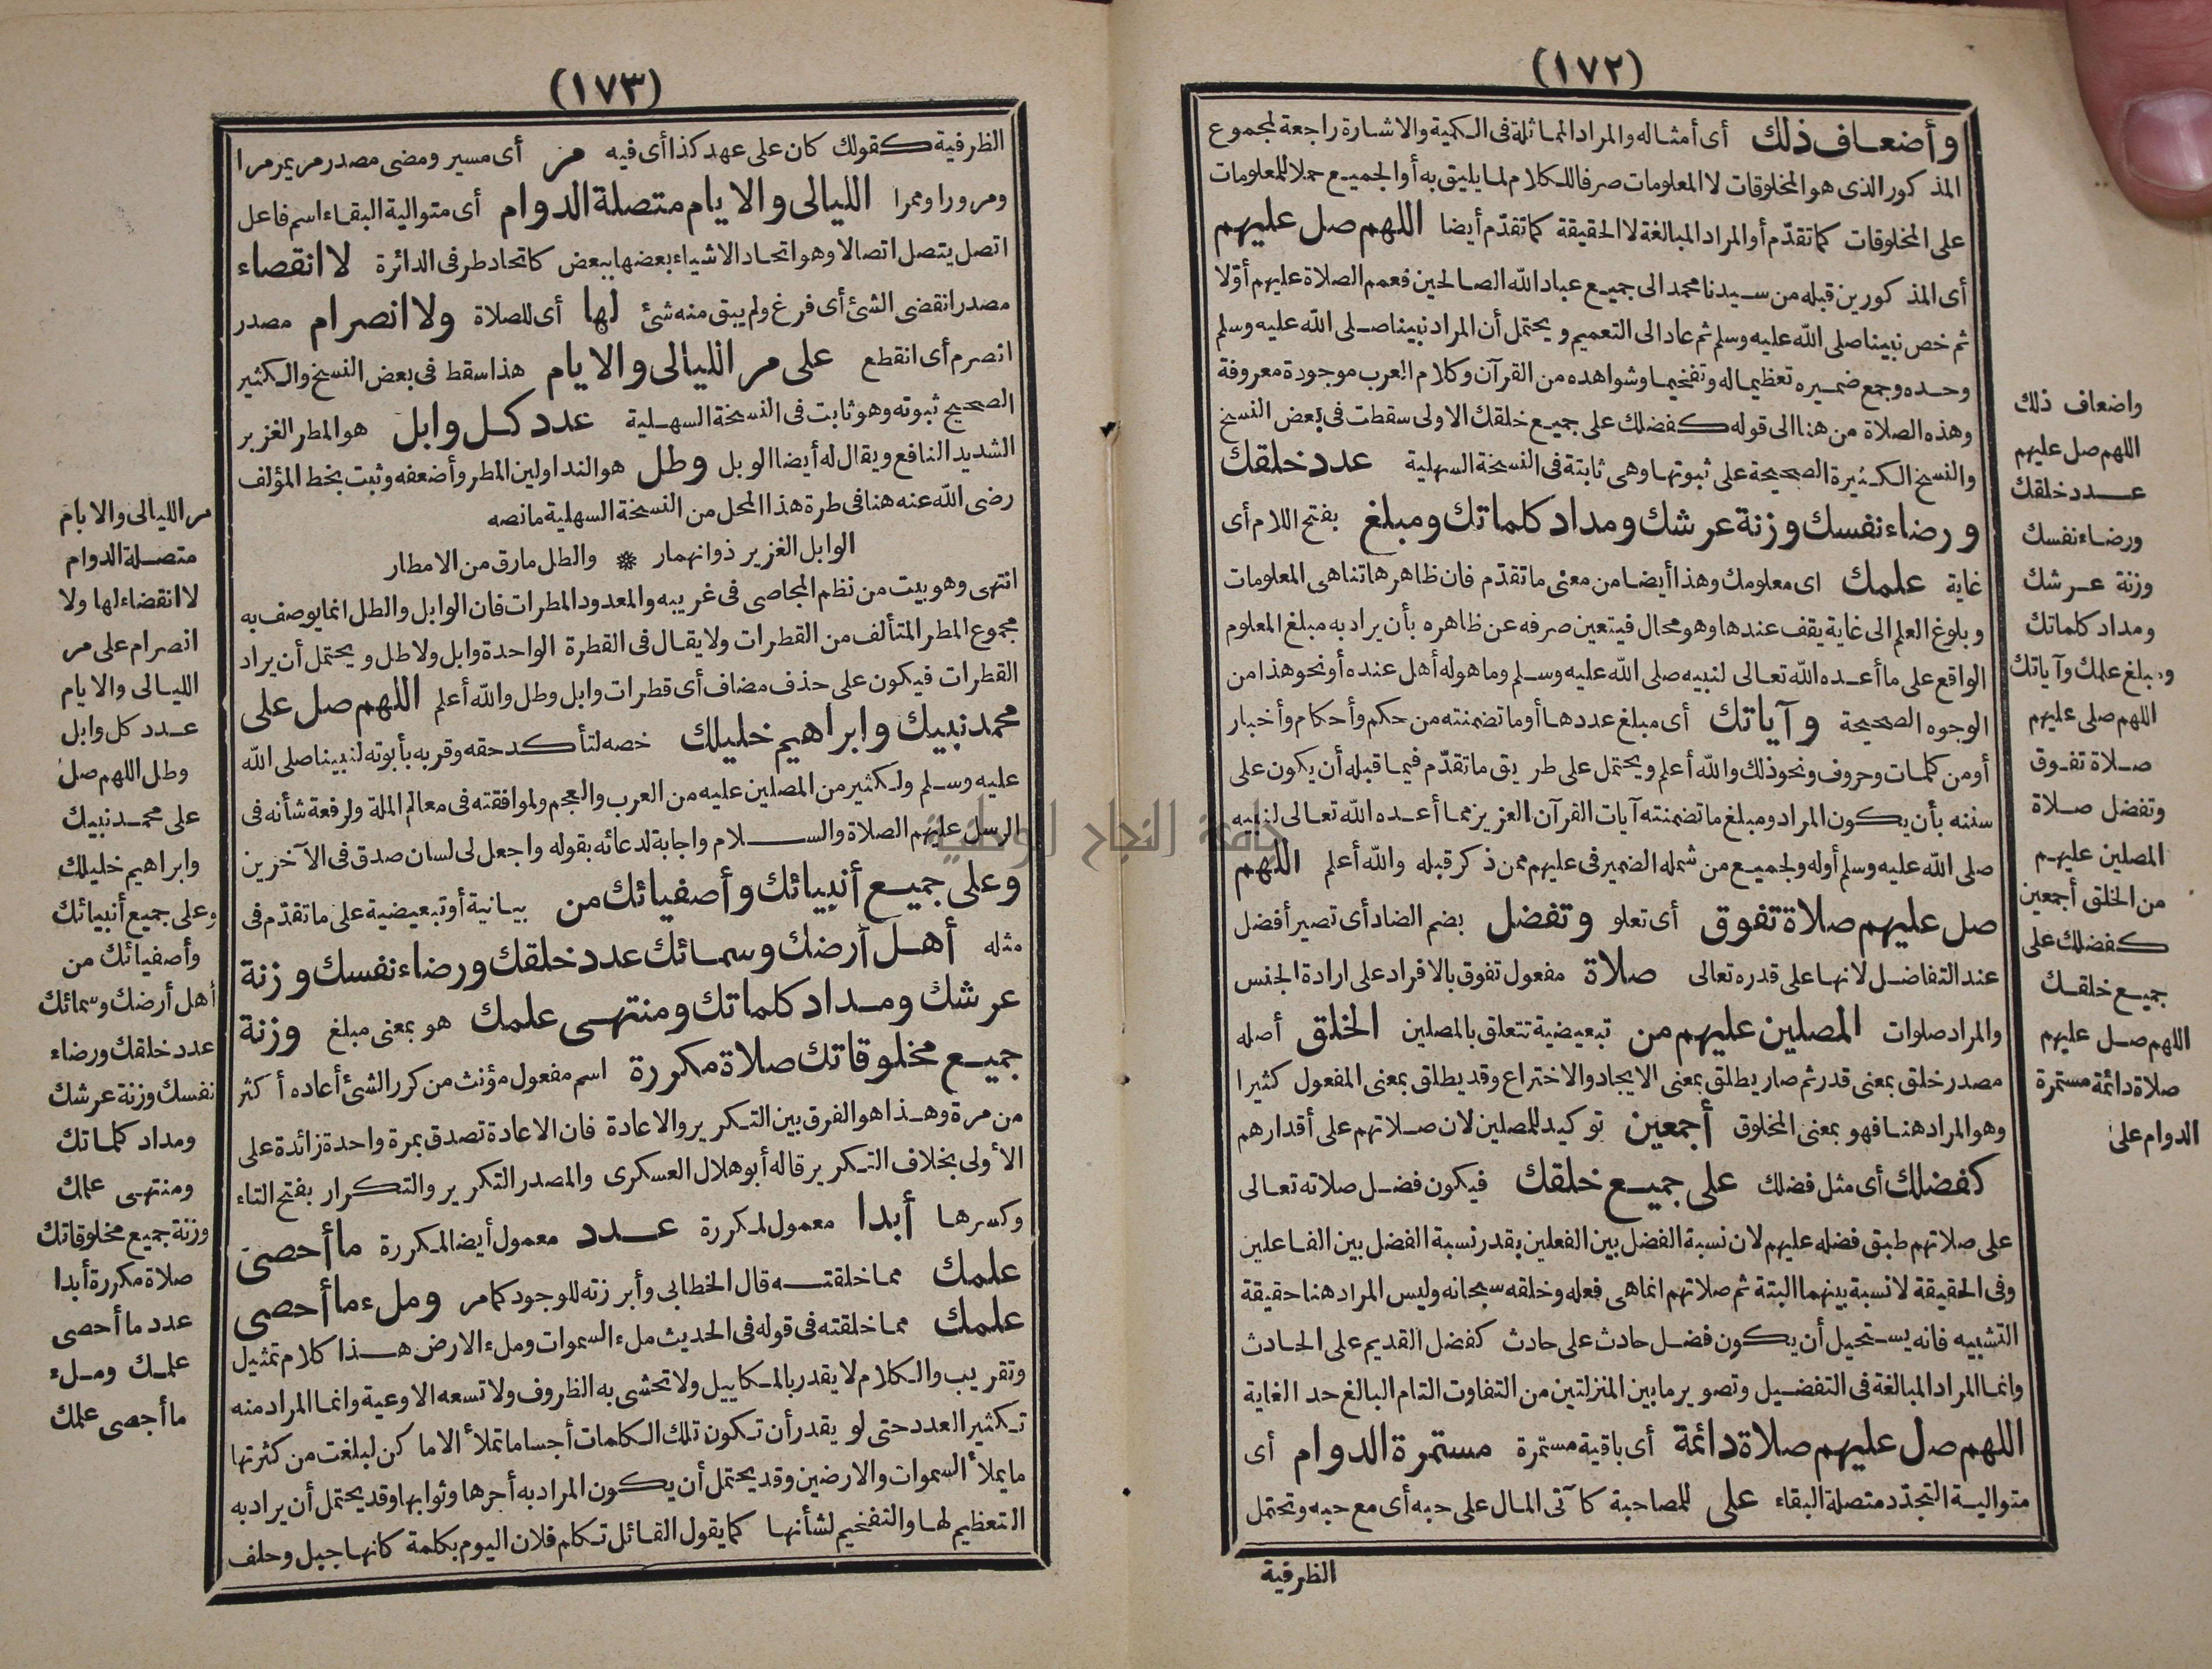 (١٧٢)
وأضعاف ذلك أى أمثاله والمراد المماثلة فى الكمية والاشارة راجعة لمجموع
المذكور الذى هو المخلوقات لا المعلومات صرفا للكلام لما يليق به أو الجميع حملا للمعلومات
على المخلوقات كما تقدّم أو المراد المبالغة لا الحقيقة كما تقدّم أيضا اللهم صل عليهم
أى المذكورين قبله من سيدنا محمد الى جميع عباد الله الصالحين فعمم الصلاة عليهم أوّلا
ثم خص نبينا صلى الله عليه وسلم ثم عاد الى التعميم ويحتمل أن المراد نبينا صلى الله عليه وسلم
وحده وجمع ضميره تعظيما له وتفخيما وشواهده من القرآن وكلام العرب موجودة معروفة
وهذه الصلاة من هنا الى قوله كفضلك على جميع خلقك الاولى سقطت فى بعض النسخ
والنسخ الكثيرة الصحيحة على ثبوتها وهى ثابتة فى النسخة السهلية عدد خلقك
ورضاء نفسك وزنة عرشك ومداد كلماتك ومبلغ بفتح اللام أى
غاية علمك اى معلومك وهذا أيضا من معنى ما تقدّم فان ظاهرها تناهى المعلومات
وبلوغ العلم الى غاية يقف عندها وهو محال فيتعين صرفه عن ظاهره بأن يراد به مبلغ المعلوم
الواقع على ما أعده الله تعالى لنبيه صلى الله عليه وسلم وما هو له أهل عنده أو نحو هذا من
الوجوه الصحيحة وآياتك أى مبلغ عددها أو ما تضمنته من حكم وأحكام وأخبار
أو من كلمات وحروف ونحو ذلك والله أعلم ويحتمل على طريق ما تقدّم فيما قبله أن يكون على
سننه بأن يكون المراد ومبلغ ما تضمنته آيات القرآن العزيز مما أعده الله تعالى لنبيه
صلى الله عليه وسلم أوله ولجميع من شمله الضمير فى عليهم ممن ذكر قبله والله أعلم اللهم
صل عليهم صلاة تفوق أى تعلو وتفضل بضم الضاد أى تصير أفضل
عند التفاضل لانها على قدره تعالى صلاة مفعول تفوق بالافراد على ارادة الجنس
والمراد صلوات المصلين عليهم من تبعيضية تتعلق بالمصلين الخلق أصله
مصدر خلق بمعنى قدر ثم صار يطلق بمعنى الايجاد والاختراع وقد يطلق بمعنى المفعول كثيرا
وهو المراد هنا فهو بمعنى المخلوق أجمعين توكيد للمصلين لان صلاتهم على أقدارهم
كفضلك أى مثل فضلك على جميع خلقك فيكون فضل صلاته تعالى
على صلاتهم طبق فضله عليهم لان نسبة الفضل بين الفعلين بقدر نسبة الفضل بين الفاعلين
وفى الحقيقة لا نسبة بينهما البتة ثم صلاتهم انما هى فعله وخلقه سبحانه وليس المراد هنا حقيقة
التشبيه فانه يستحيل أن يكون فضل حادث على حادث كفضل القديم على الحادث
وانما المراد المبالغة فى التفضيل وتصوير ما بين المنزلتين من التفاوت التام البالغ حد الغاية
اللهم صل عليهم صلاة دائمة أى باقية مستمرة مستمرة الدوام أى
متوالية التجدّد متصلة البقاء على للمصاحبة كآتى المال على حبه أى مع حبه وتحتمل
الظرفية
واضعاف ذلك
اللهم صل عليهم
عدد خلقك
ورضاء نفسك
وزنة عرشك
ومداد كلماتك
ومبلغ علمك وآياتك
اللهم صلى عليهم
صلاة تفوق
وتفضل صلاة
المصلين عليهم
من الخلق أجمعين
كفضلك على
جميع خلقك
اللهم صل عليهم
صلاة دائمة مستمرة
الدوام على
(١٧٣)
الظرفية كقولك كان على عهد كذا أى فيه مر أى مسير ومضى مصدر مر يمر مرا
ومرورا وممرا الليالى والايام متصلة الدوام أى متوالية البقاء اسم فاعل
اتصل يتصل اتصالا وهو اتحاد الاشياء بعضها ببعض كاتحاد طرفى الدائرة لا انقضاء
مصدر انقضى الشئ أى فرغ ولم يبق منه شئ لها أى للصلاة ولا انصرام مصدر
انصرم أى انقطع على مر الليالى والايام هذا سقط فى بعض النسخ والكثير
الصحيح ثبوته وهو ثابت فى النسخة السهلية عدد كل وابل هو المطر الغزير
الشديد النافع ويقال له أيضا الوبل وطل هو الندا ولين المطر وأضعفه وثبت بخط المؤلف
رضى الله عنه هنا فى طرة هذا المحل من النسخة السهلية ما نصه
الوابل الغزير ذو انهمار ❋ والطل مارق من الامطار
انتهى وهو بيت من نظم المجاصى فى غريبه والمعدود المطرات فان الوابل والطل انما يوصف به
مجموع المطر المتألف من القطرات ولا يقال فى القطرة الواحدة وابل ولا طل ويحتمل أن يراد
القطرات فيكون على حذف مضاف أى قطرات وابل وطل والله أعلم اللهم صل على
محمد نبيك وابراهيم خليلك خصه لتأكد حقه وقربه بأبوته لنبينا صلى الله
عليه وسلم ولكثير من المصلين عليه من العرب والعجم ولموافقته فى معالم الملة ولرفعة شأنه فى
الرسل عليهم الصلاة والسلام واجابة لدعائه بقوله واجعل لى لسان صدق فى الآخرين
وعلى جميع أنبيائك وأصفيائك من بيانية أو تبعيضية على ما تقدّم فى
مثله أهل أرضك وسمائك عدد خلقك ورضاء نفسك وزنة
عرشك ومداد كلماتك ومنتهى علمك هو بمعنى مبلغ وزنة
جميع مخلوقاتك صلاة مكررة اسم مفعول مؤنث من كرر الشئ أعاده أكثر
من مرة وهذا هو الفرق بين التكرير والاعادة فان الاعادة تصدق بمرة واحدة زائدة على
الأولى بخلاف التكرير قاله أبو هلال العسكرى والمصدر التكرير والتكرار بفتح التاء
وكسرها أبدا معمول لمكررة عدد معمول أيضا لمكررة ما أحصى
علمك مما خلقته قال الخطابى وأبرزته للوجود كما مر وملء ما أحصى
علمك مما خلقته فى قوله فى الحديث ملء السموات وملء الارض هذا كلام تمثيل
وتقريب والكلام لا يقدر بالمكاييل ولا تحشى به الظروف ولا تسعه الاوعية وانما المراد منه
تكثير العدد حتى لو يقدر أن تكون تلك الكلمات أجساما تملأ الاماكن لبلغت من كثرتها
ما يملأ السموات والارضين وقد يحتمل أن يكون المراد به أجرها وثوابها وقد يحتمل أن يراد به
التعظيم لها والتفخيم لشأنها كما يقول القائل تكلم فلان اليوم بكلمة كأنها جبل وحلف
مر الليالى والايام
متصلة الدوام
لا انقضاء لها ولا
انصرام على مر
الليالى والايام
عدد كل وابل
وطل اللهم صل
على محمد نبيك
وابراهيم خليلك
وعلى جميع أنبيائك
وأصفيائك من
أهل أرضك وسمائك
عدد خلقك ورضاء
نفسك وزنة عرشك
ومداد كلماتك
ومنتهى علمك
وزنة جميع مخلوقاتك
صلاة مكررة أبدا
عدد ما أحصى
علمك وملء
ما أحصى علمك
جامعة النجاح الوطنية